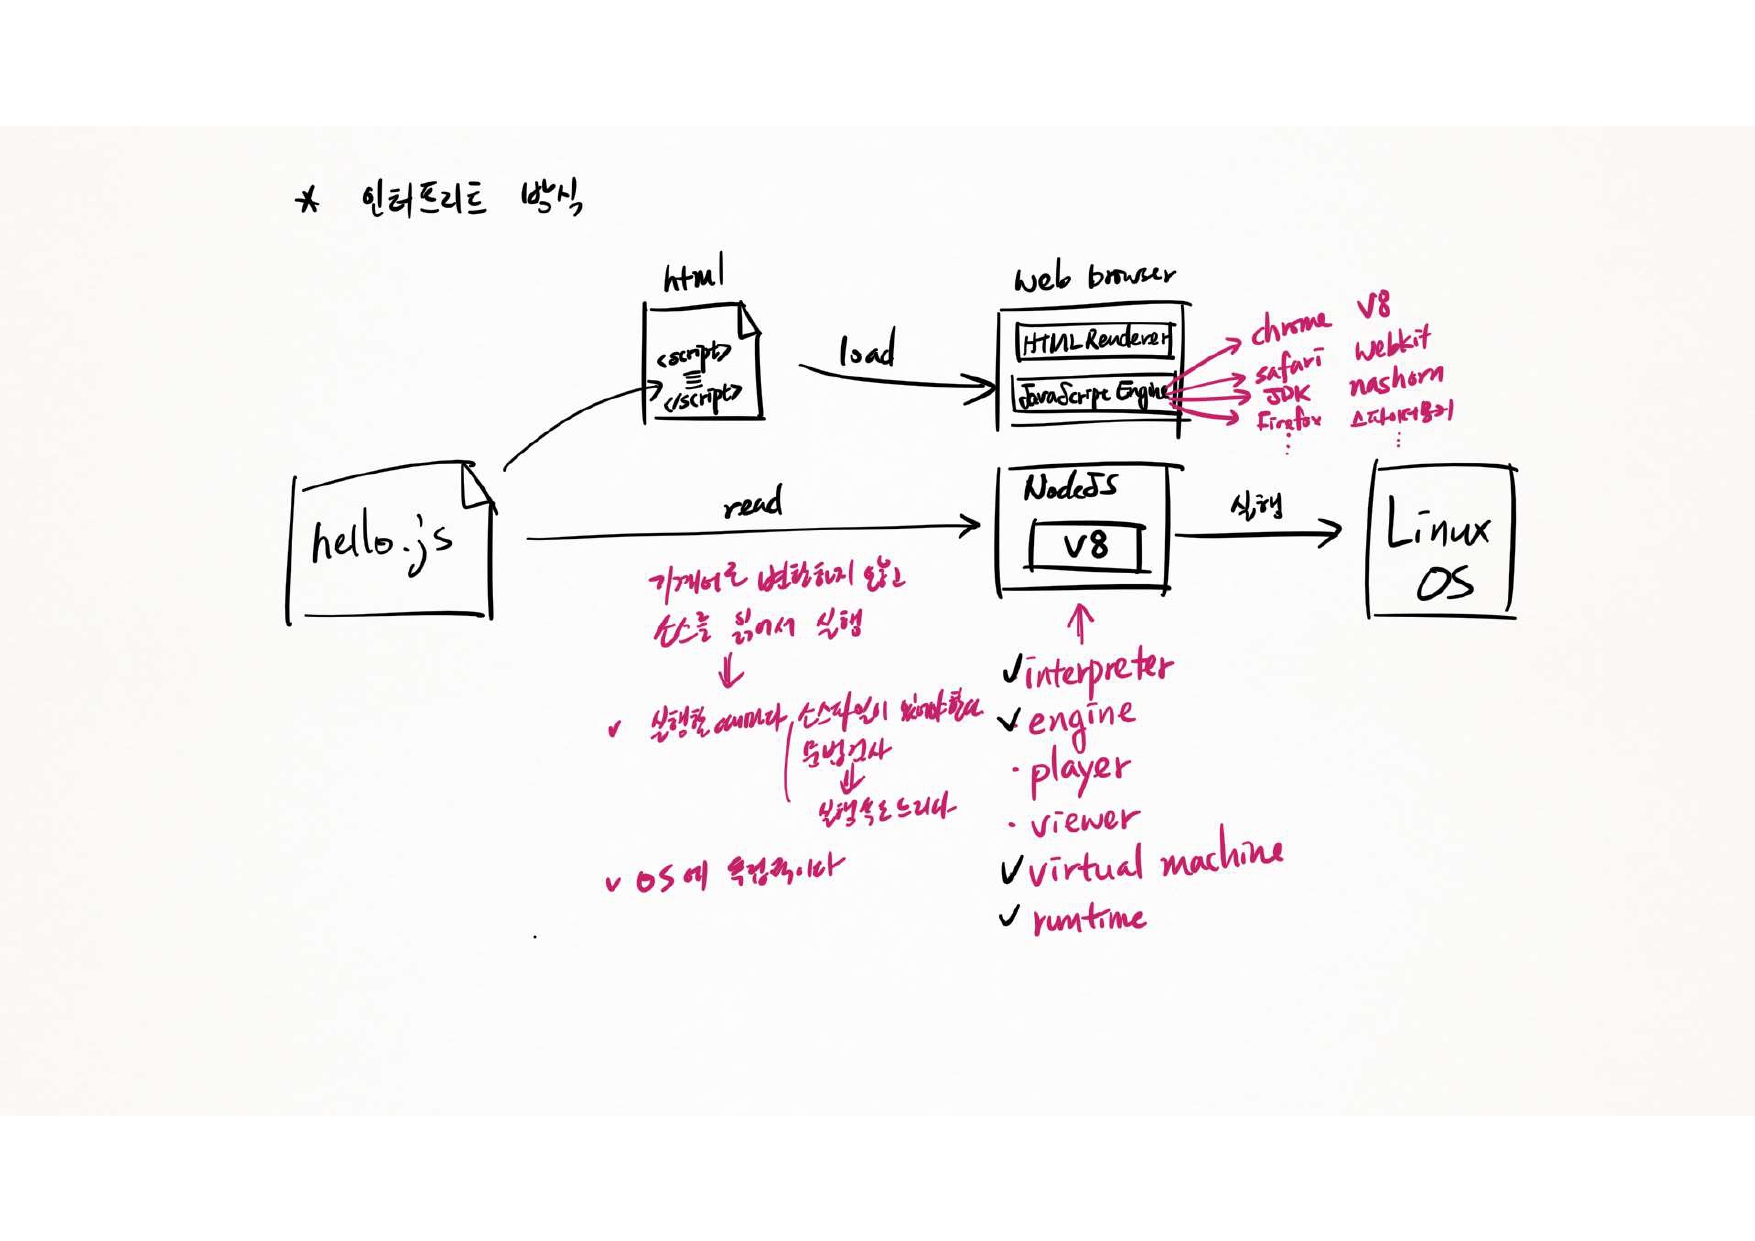 * 인터프리트 방식
html
<script>
</script>
load
web browser
HTML Renderer
JavaScript Engine
chrome V8
safari webkit
JDK nashorn
Firefox 스파이더몽키
hello.js
read
NodeJS
V8
실행
Linux
OS
기계어로 변환하지 않고
소스를 읽어서 실행
✓ 실행할 때마다 소스파일이 있어야 한다
문법검사
실행속도 느리다
✓ OS에 독립적이다
✓ interpreter
✓ engine
· player
· viewer
✓ virtual machine
✓ runtime